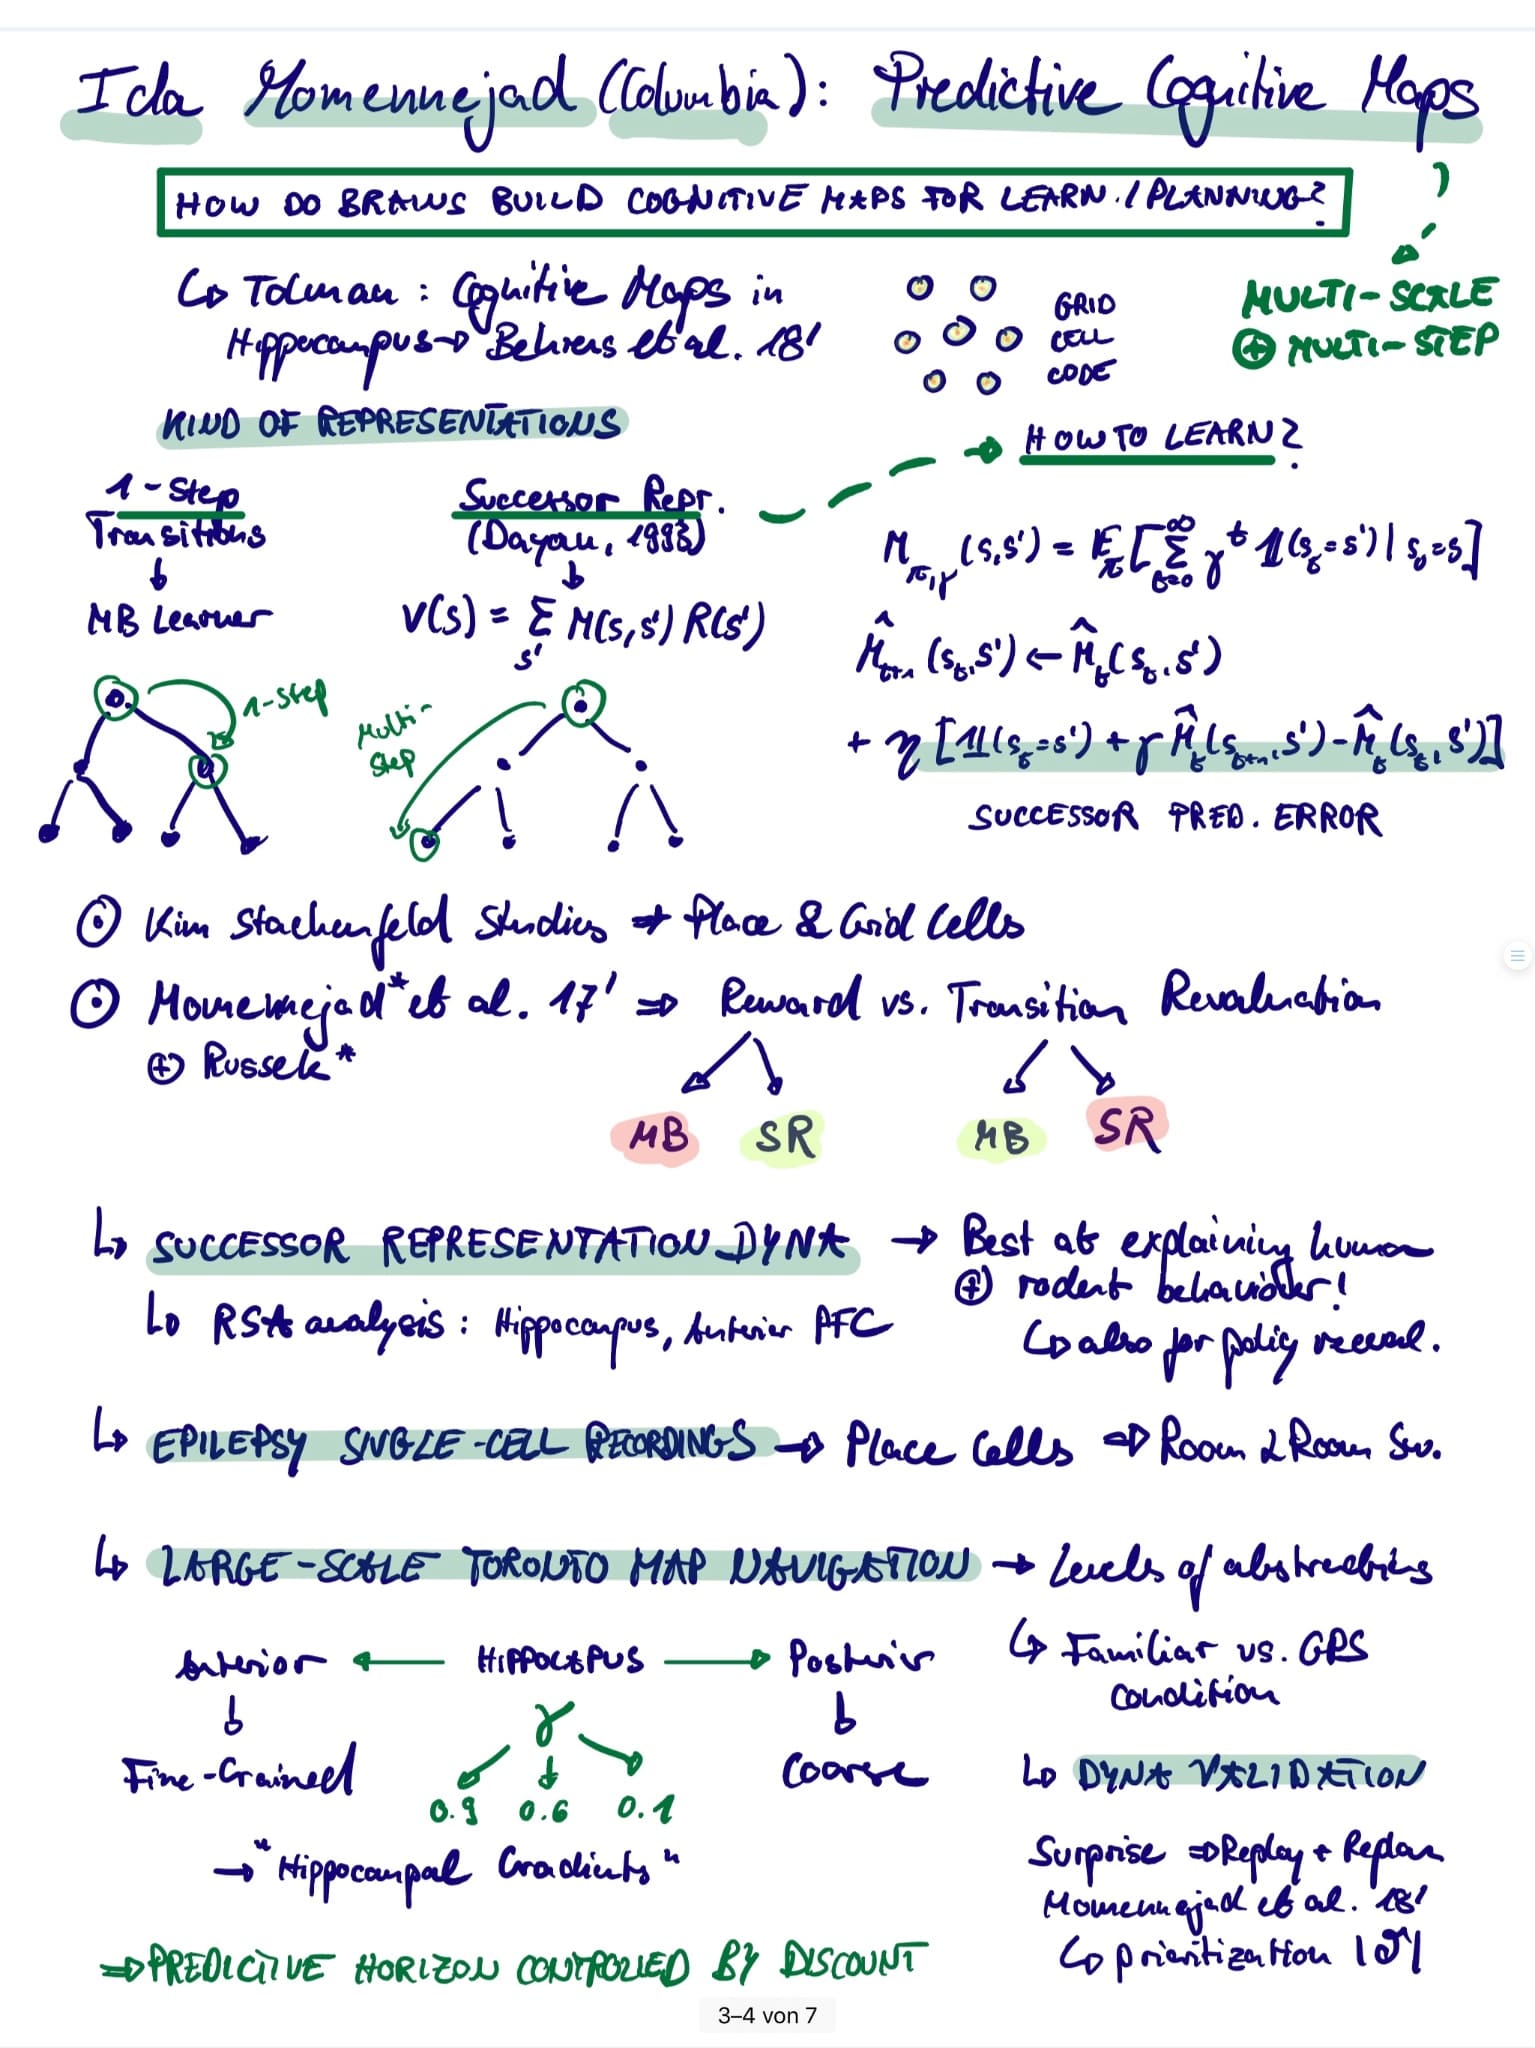 Ida Momennejad (Columbia): Predictive Cognitive Maps
HOW DO BRAINS BUILD COGNITIVE MAPS FOR LEARN. / PLANNING?
↳ Tolman: Cognitive Maps in
Hippocampus → Behrens et al. 18'
GRID
CELL
CODE
MULTI-SCALE
⊕ MULTI-STEP
KIND OF REPRESENTATIONS
HOW TO LEARN?
1-Step
Transitions
↓
MB Learner
Successor Repr.
(Dayan, 1993)
↓
V(s) = Σ_s' M(s,s') R(s')
M_π,γ (s,s') = E_π [Σ_{t=0}^∞ γ^t 𝟙(s_t=s') | s_0=s]
M̂_t+1 (s_t,s') ← M̂_t (s_t,s')
+ η [𝟙(s_t=s') + γ M̂_t(s_t+1,s') - M̂_t(s_t,s')]
SUCCESSOR PRED. ERROR
1-step
Multi-
step
⊙ Kim Stachenfeld Studies → Place & Grid Cells
⊙ Momennejad* et al. 17' ⇒ Reward vs. Transition Revaluation
⊕ Russek*
MB SR MB SR
↳ SUCCESSOR REPRESENTATION DYNA → Best at explaining human
⊕ rodent behaviour!
↳ also for policy reeval.
↳ RSA analysis: Hippocampus, Anterior PFC
↳ EPILEPSY SINGLE-CELL RECORDINGS → Place Cells ⇒ Room 2 Room Sw.
↳ LARGE-SCALE TORONTO MAP NAVIGATION → Levels of abstractions
↳ Familiar vs. GPS
Condition
Anterior ← HIPPOCAPUS → Posterior
↓ γ ↓
Fine-Grained
0.9 0.6 0.1
Coarse
→ "Hippocampal Gradients"
⇒ PREDICTIVE HORIZON CONTROLLED BY DISCOUNT
↳ DYNA VALIDATION
Surprise ⇒ Replay + Replan
Momennejad et al. 18'
↳ prioritization |δ|
3–4 von 7